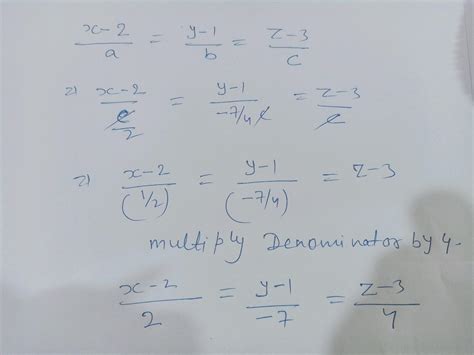 x-2/a = y-1/b = z-3/c
⇒ x-2/(c/2) = y-1/(-7/4 c) = z-3/c
⇒ x-2/(1/2) = y-1/(-7/4) = z-3
multiply Denominator by 4.
x-2/2 = y-1/-7 = z-3/4